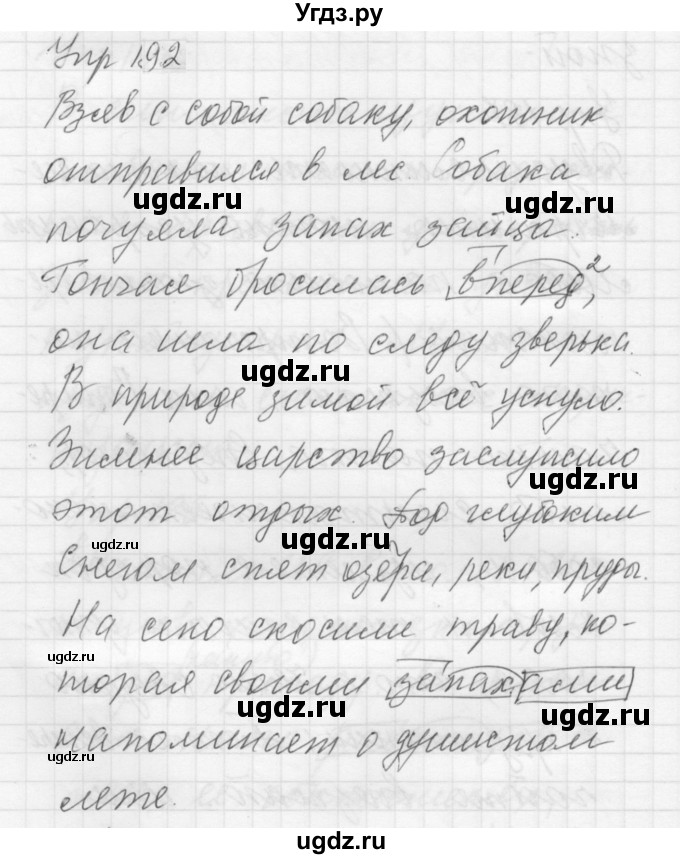 Угдз.ру
Упр 192
Взяв с собой собаку, охотник
отправился в лес. Собака
ugdz.ru ugdz.ru
почуяла запах зайца.
Гончая бросилась вперед²,
ugdz.ru
она шла по следу зверька.
ugdz.ru
В природе зимой всё уснуло.
ugdz.ru
Зимнее царство заслужило
ugdz.ru
этот отдых. Под глубоким
ugdz.ru ugdz.ru
снегом спят озёра, реки, пруды.
ugdz.ru
На сено скосили траву, ко-
ugdz.ru
торая своими запахами
ugdz.ru ugdz.ru
напоминает о душистом
ugdz.ru ugdz.ru
лете.
ugdz.ru